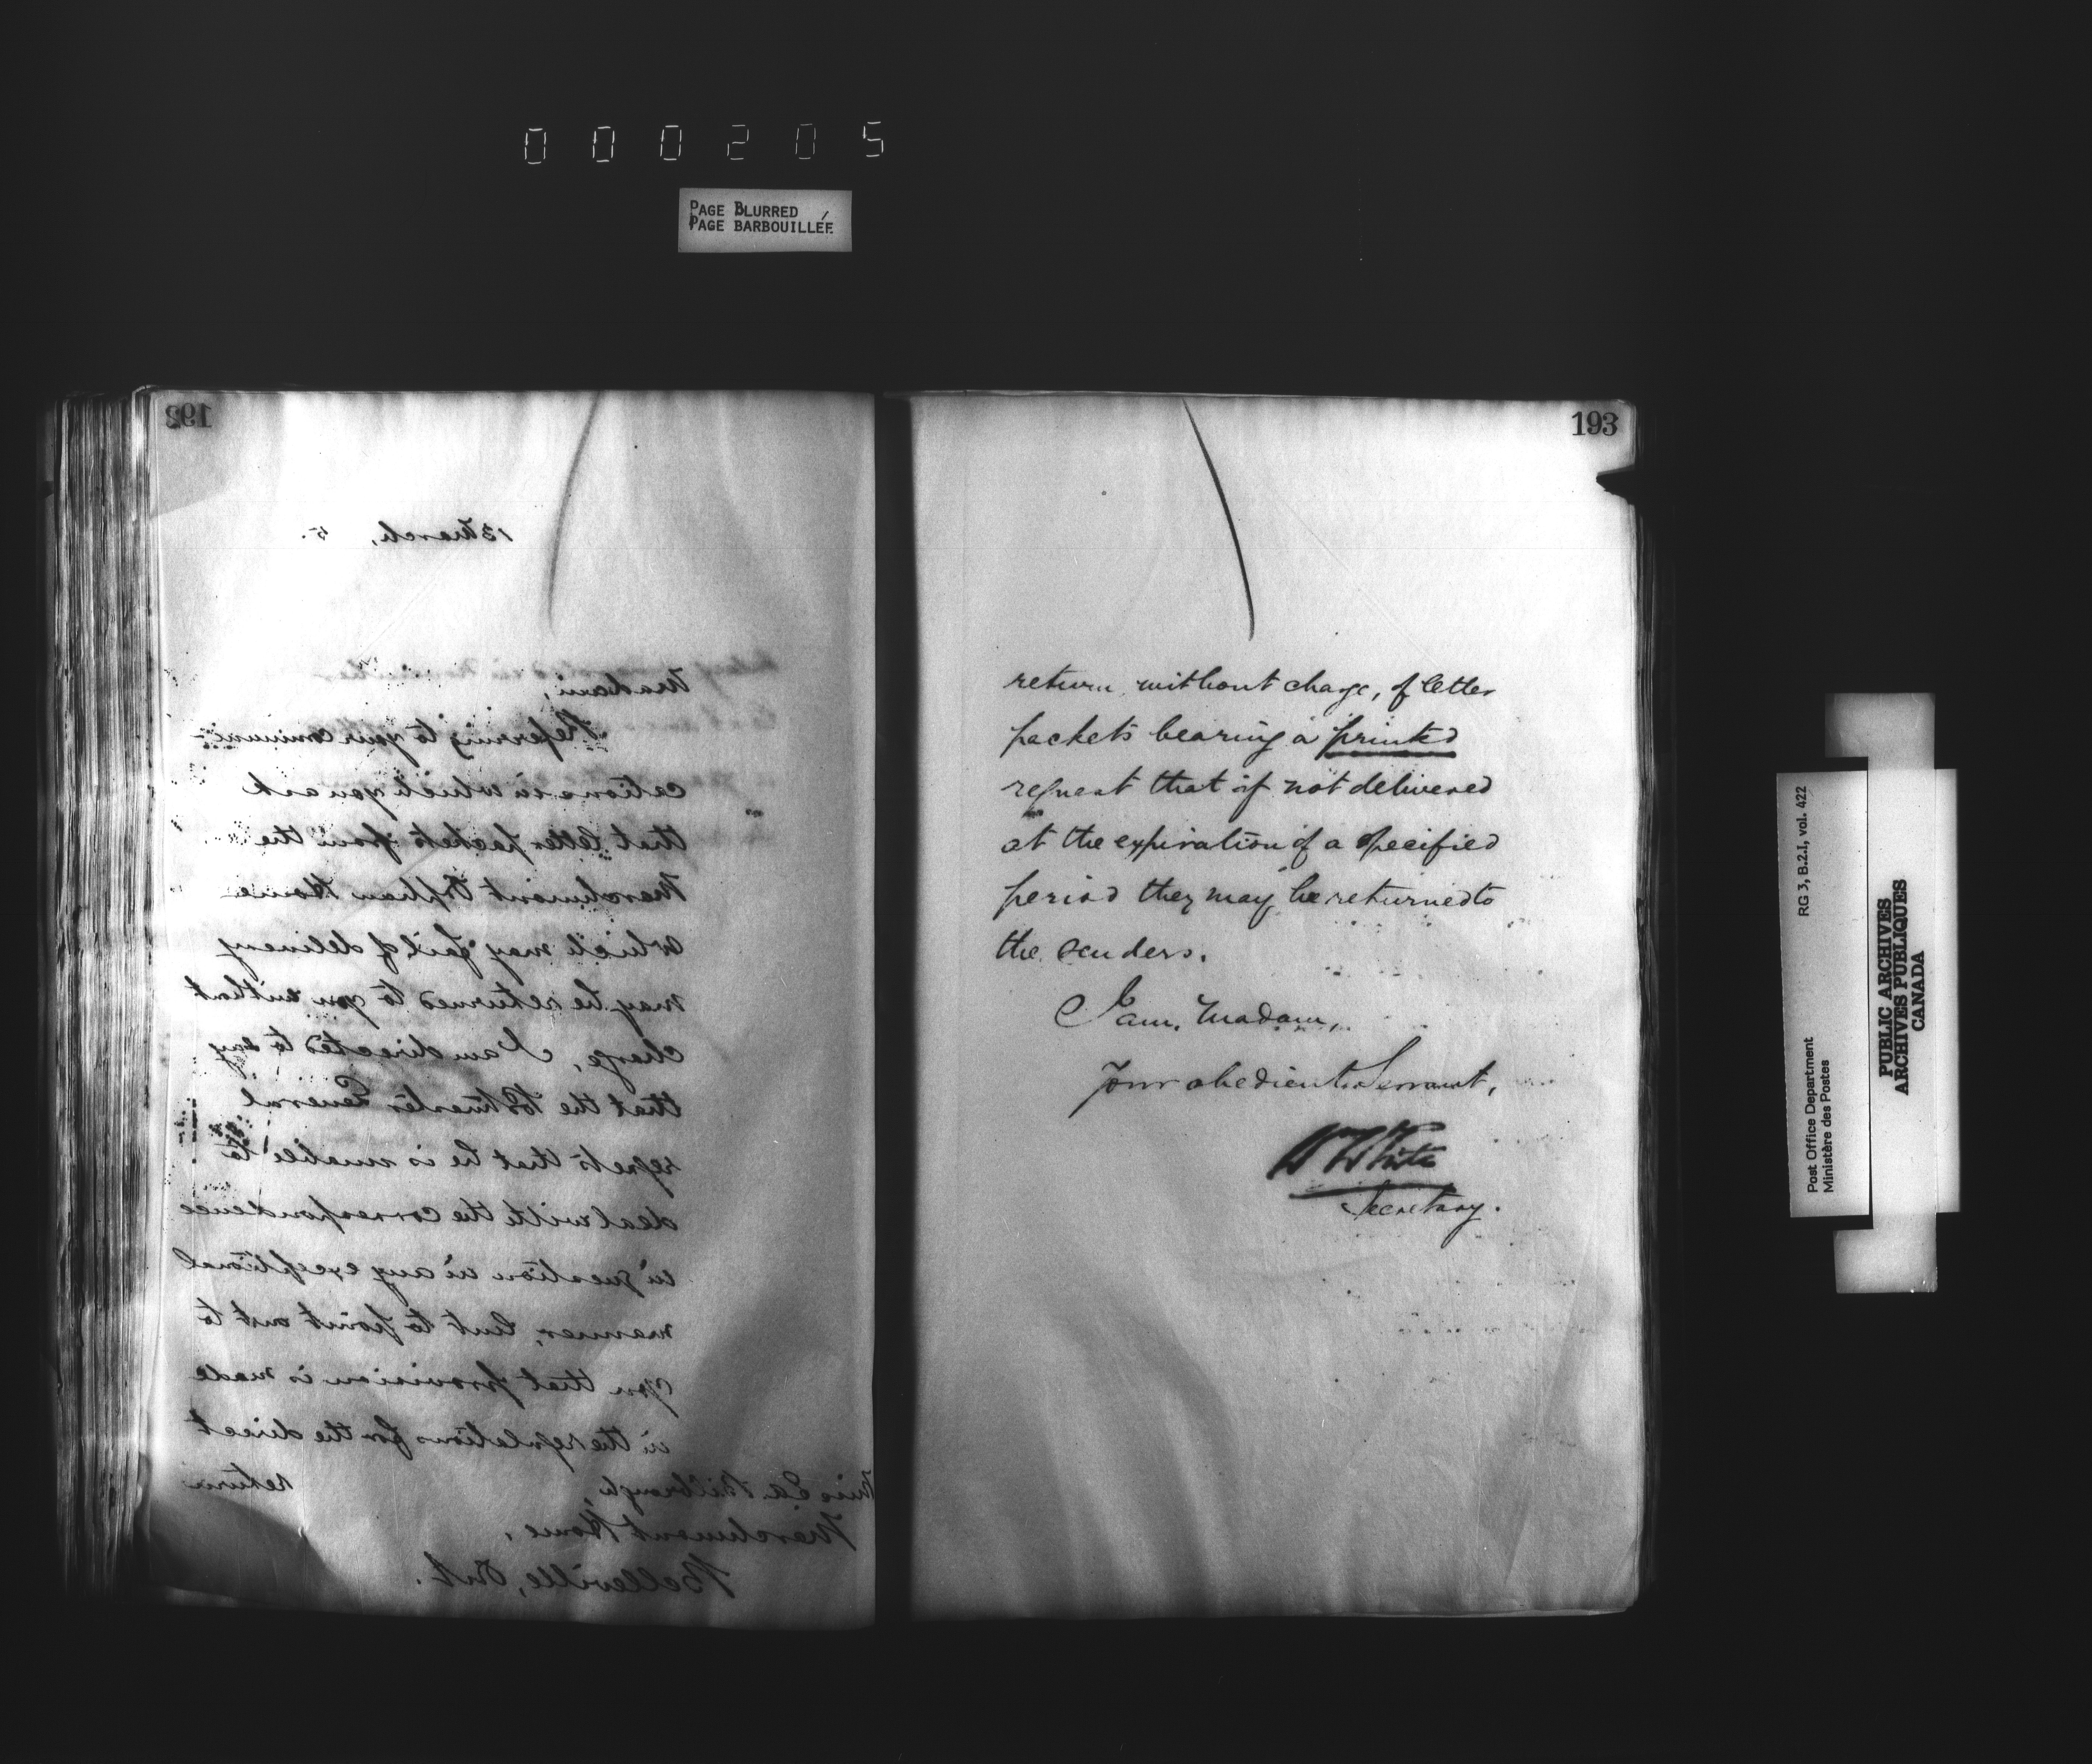 000205
PAGE BLURRED
PAGE BARBOUILLÉE
192
13 March, 5.
Madam,
Referring to your communi-
cations in which you ask
that letter packets from the
Marchmont Orphan Home
which may fail of delivery
may be returned to you without
charge, I am directed to say
that the Postmaster General
regrets that he is unable to
deal with the correspondence
in question in any exceptional
manner, but to point out to
you that provision is made
in the regulations for the direct
return
Miss Bilbrough,
Marchmont Home,
Belleville, Ont.
193
return without charge, of letter
packets bearing a printed
request that if not delivered
at the expiration of a specified
period they may be returned to
the senders.
I am, Madam,
Your obedient Servant,
W White
Secretary.
RG 3, B.2.I, vol. 422
Post Office Department
Ministère des Postes
PUBLIC ARCHIVES
ARCHIVES PUBLIQUES
CANADA